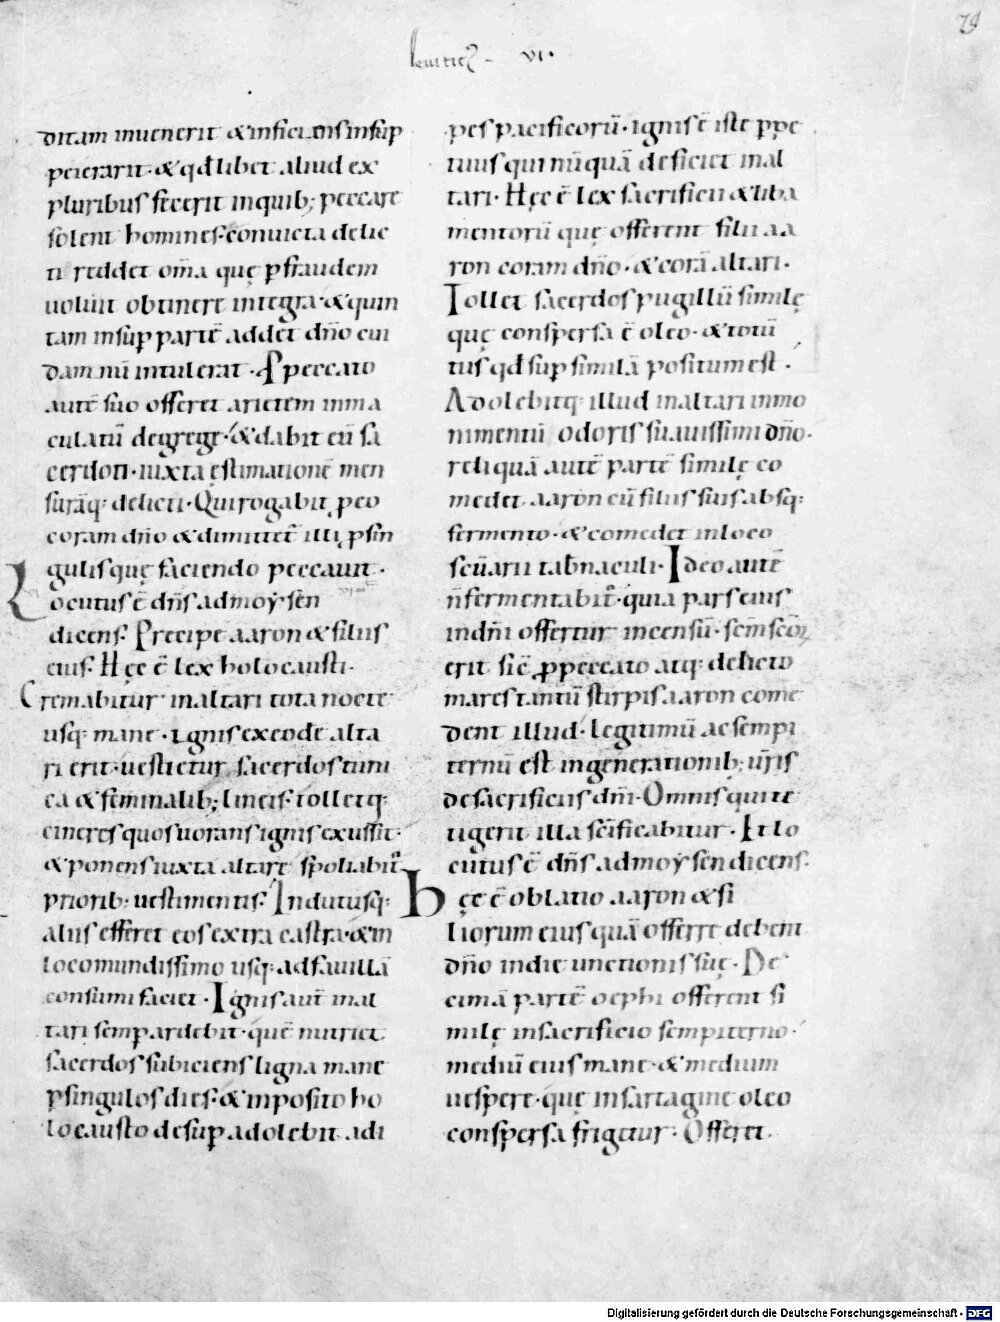 79
leuitic9 - vi.
ditam inuenerit & inficiansinsup
peierarit· & qđ libet aliud ex
pluribus fecerit inquib; peccare
solent homines· conuicta delic
ti reddet om̄a quę ꝑfraudem
uoluit obtinere integra· & quin
tam insuꝑ partē addet dn̄o cui
dam̄num intulerat· ꝓ peccato
autē suo offeret arietem inma
culatū degrege· & dabit eū sa
cerdoti· iuxta ęstimationē men
surāq; delicti· Qui rogabit ꝓ eo
coram dn̄o & dimittet̄ illi ꝓ sin
gulis quę faciendo peccauit·
Locutus ē dn̄s ad moẏsen
dicens· Precipe aaron & filiis
eius· Hęc ē lex holocausti·
Cremabitur inaltari tota nocte
usq; mane· ignis ex eodē alta
ri erit· uestietur sacerdos tuni
ca & feminalib; lineis· tolletq;
cineres quos uorans ignis exussit·
& ponens iuxta altare spoliabit̄
priorib; uestimentis· Indutusq;
aliis efferet eos extra castra· & in
loco mundissimo usq; ad fauillā
consumi faciet· Ignis aut̄ inal
tari semper ardebit· quē nutriet
sacerdos subiciens ligna mane
ꝑ singulos dies· & inposito ho
locausto desuꝑ adolebit adi
pes pacificorū· ignis ē iste ꝑpe
tuus qui nūquā deficiet inal
tari· Hęc ē lex sacrificii & liba
mentorū quę offerent filii aa
ron coram dn̄o· & corā altari·
Tollet sacerdos pugillū similę
quę conspersa ē oleo· & totū
tus qđ suꝑ similā positum est·
Adolebitq; illud inaltari inmo
nimentū odoris suauissimi dn̄o·
reliquā autē partē similę co
medet aaron cū filiis suis absq;
fermento· & comedet inloco
sc̄uarii tab̄naculi· Ideo autē
n̄ fermentabit̄· quia pars eius
indn̄i offertur incensū· sc̄m sc̄oꝝ
erit sic̄ ꝓ peccato atq; delicto
mares tantū stirpis aaron come
dent illud· legitimū ac sempi
ternū est ingenerationib; ur̄is
desacrificiis dn̄i· Omnis qui te
tigerit illa sc̄ificabitur· Et lo
cutus ē dn̄s ad moẏsen dicens·
Hęc ē oblatio aaron & fi
liorum eius quā offerre debent
dn̄o in die unctionis suę· De
cimā partē oephi offerent si
milę insacrificio sempiterno·
mediū eius mane· & medium
uespere· quę insartagine oleo
conspersa frigetur· Offeret
Digitalisierung gefördert durch die Deutsche Forschungsgemeinschaft - DFG